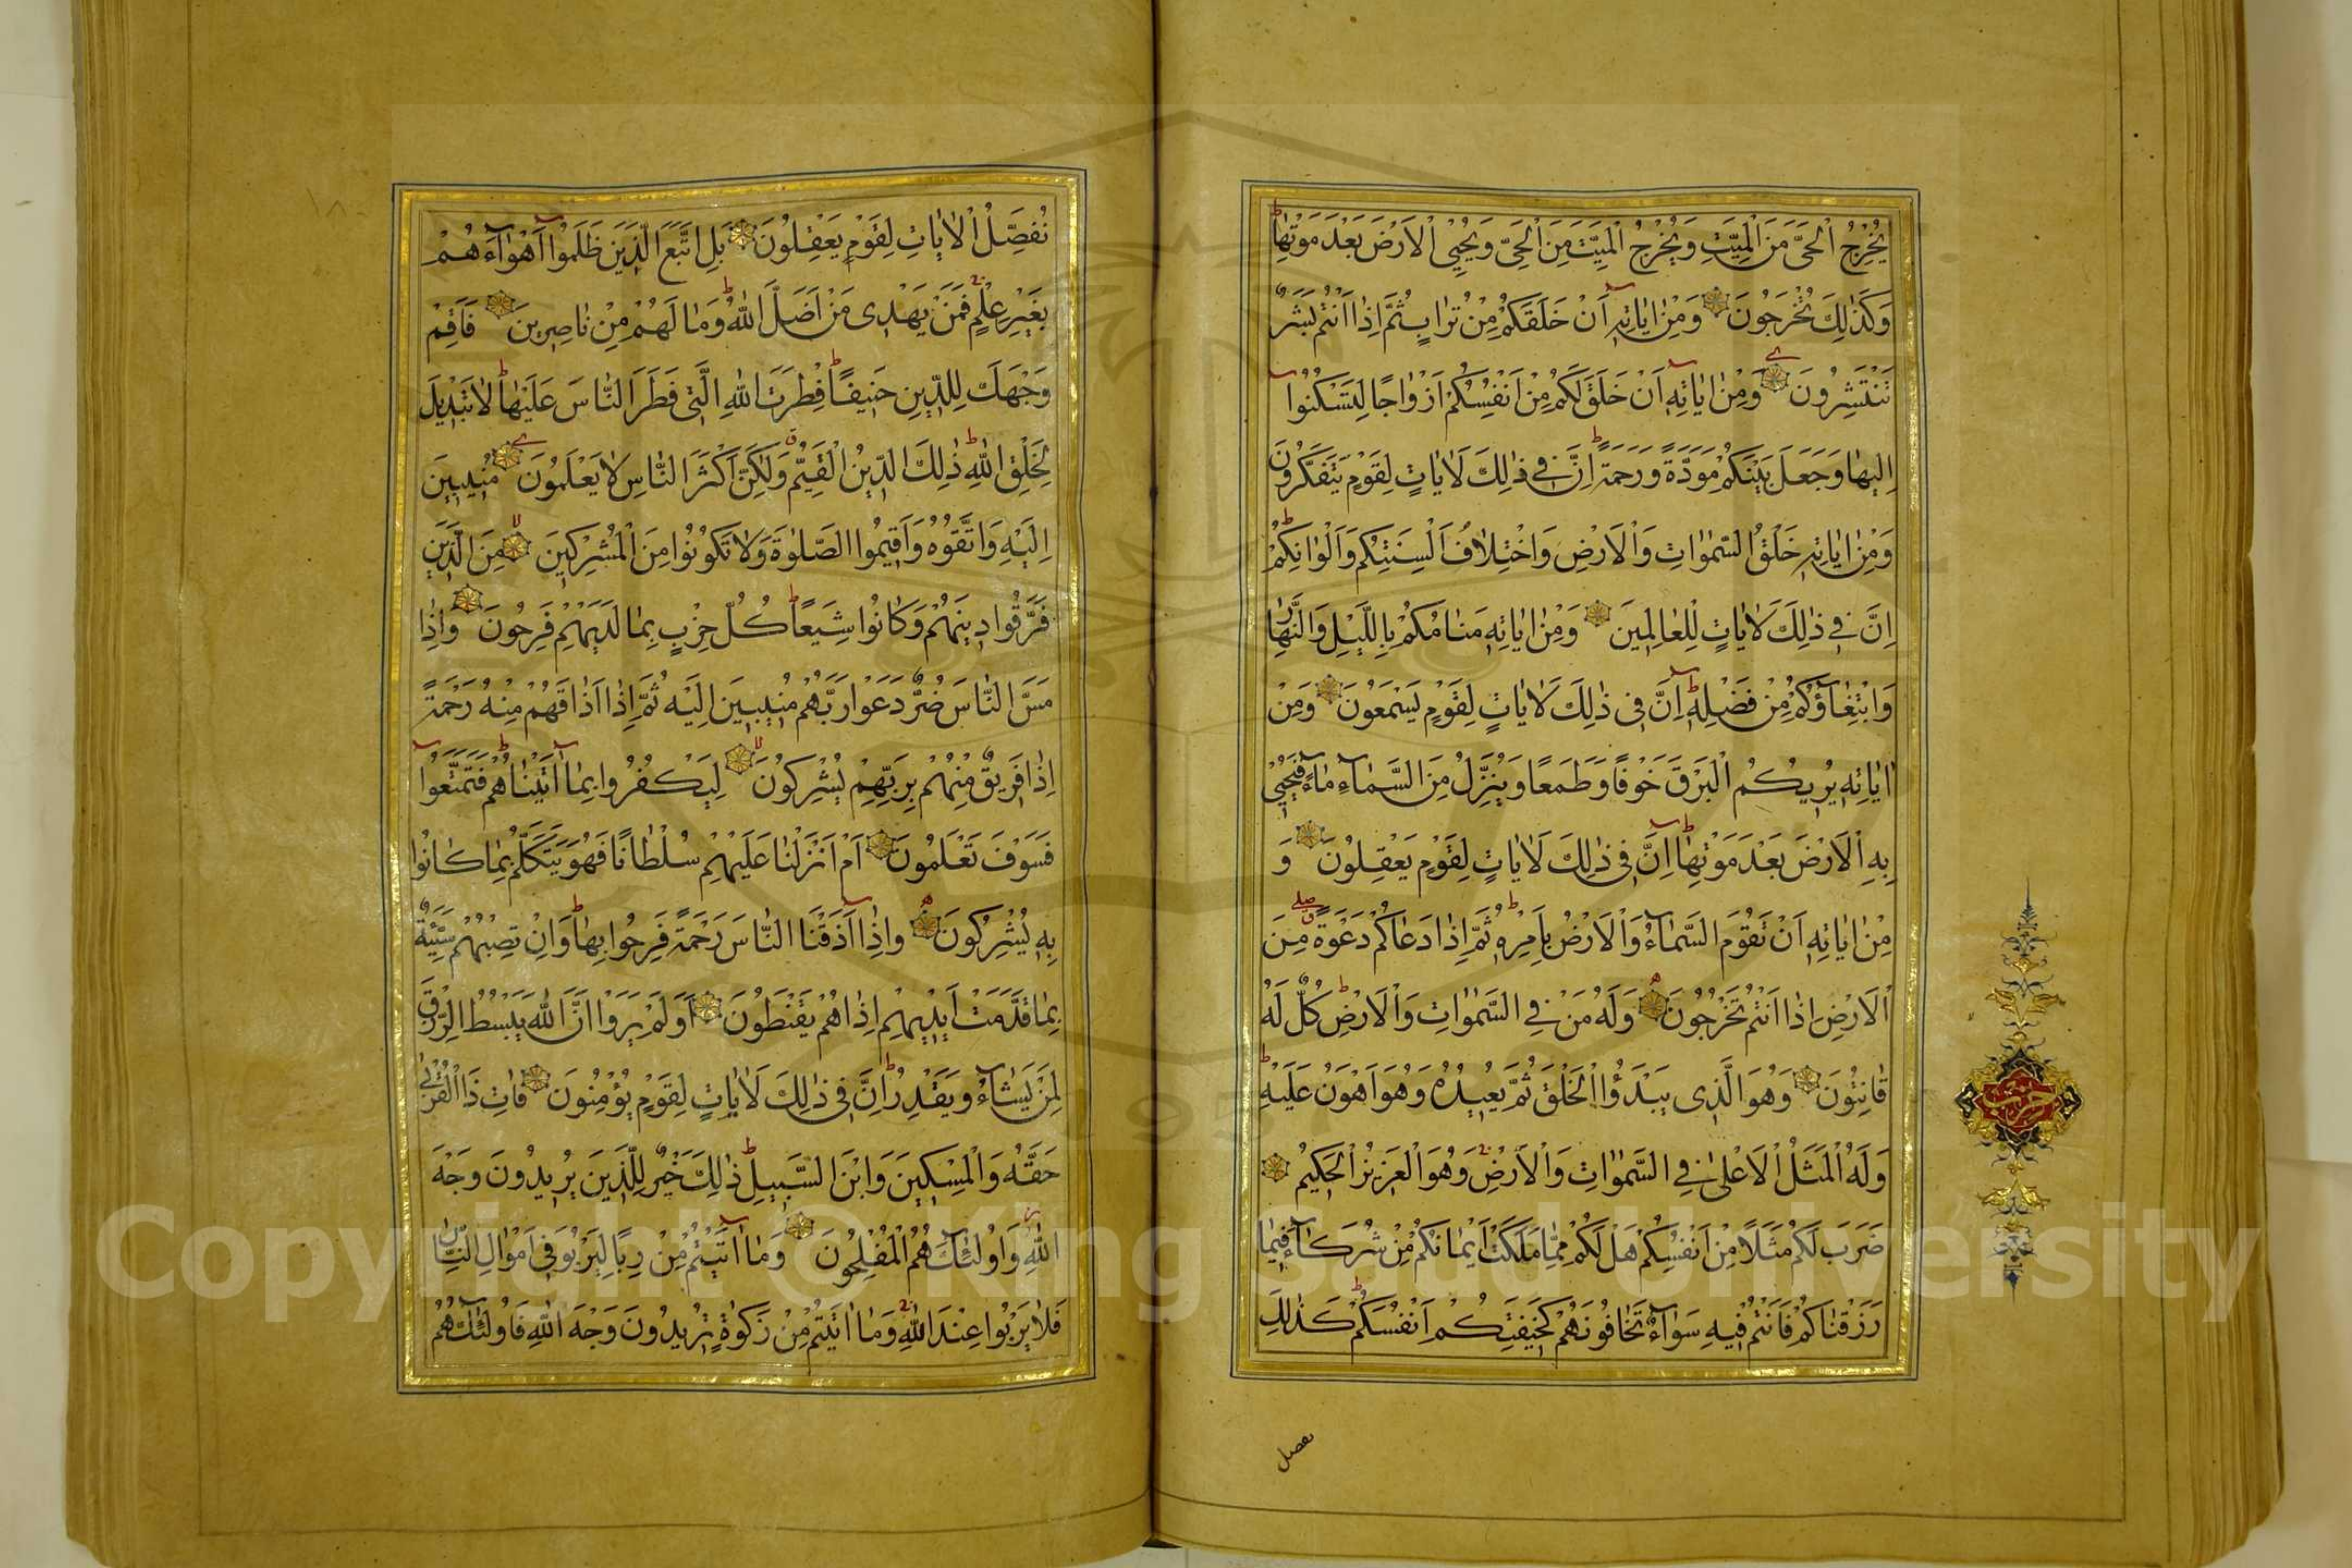 يُخْرِجُ الْحَيَّ مِنَ الْمَيِّتِ وَيُخْرِجُ الْمَيِّتَ مِنَ الْحَيِّ وَيُحْيِي الْاَرْضَ بَعْدَ مَوْتِهَا
وَكَذٰلِكَ تُخْرَجُونَ وَمِنْ اٰيَاتِهِ اَنْ خَلَقَكُمْ مِنْ تُرَابٍ ثُمَّ اِذَا اَنْتُمْ بَشَرٌ
تَنْتَشِرُونَ وَمِنْ اٰيَاتِهِ اَنْ خَلَقَ لَكُمْ مِنْ اَنْفُسِكُمْ اَزْوَاجًا لِتَسْكُنُوا
اِلَيْهَا وَجَعَلَ بَيْنَكُمْ مَوَدَّةً وَرَحْمَةً اِنَّ فِي ذٰلِكَ لَاٰيَاتٍ لِقَوْمٍ يَتَفَكَّرُونَ
وَمِنْ اٰيَاتِهِ خَلْقُ السَّمٰوَاتِ وَالْاَرْضِ وَاخْتِلَافُ اَلْسِنَتِكُمْ وَاَلْوَانِكُمْ
اِنَّ فِي ذٰلِكَ لَاٰيَاتٍ لِلْعَالِمِينَ وَمِنْ اٰيَاتِهِ مَنَامُكُمْ بِاللَّيْلِ وَالنَّهَارِ
وَابْتِغَاؤُكُمْ مِنْ فَضْلِهِ اِنَّ فِي ذٰلِكَ لَاٰيَاتٍ لِقَوْمٍ يَسْمَعُونَ وَمِنْ
اٰيَاتِهِ يُرِيكُمُ الْبَرْقَ خَوْفًا وَطَمَعًا وَيُنَزِّلُ مِنَ السَّمَاءِ مَاءً فَيُحْيِي
بِهِ الْاَرْضَ بَعْدَ مَوْتِهَا اِنَّ فِي ذٰلِكَ لَاٰيَاتٍ لِقَوْمٍ يَعْقِلُونَ وَ
مِنْ اٰيَاتِهِ اَنْ تَقُومَ السَّمَاءُ وَالْاَرْضُ بِاَمْرِهِ ثُمَّ اِذَا دَعَاكُمْ دَعْوَةً مِنَ
الْاَرْضِ اِذَا اَنْتُمْ تَخْرُجُونَ وَلَهُ مَنْ فِي السَّمٰوَاتِ وَالْاَرْضِ كُلٌّ لَهُ
قَانِتُونَ وَهُوَ الَّذِي يَبْدَؤُا الْخَلْقَ ثُمَّ يُعِيدُهُ وَهُوَ اَهْوَنُ عَلَيْهِ
وَلَهُ الْمَثَلُ الْاَعْلٰى فِي السَّمٰوَاتِ وَالْاَرْضِ وَهُوَ الْعَزِيزُ الْحَكِيمُ
ضَرَبَ لَكُمْ مَثَلًا مِنْ اَنْفُسِكُمْ هَلْ لَكُمْ مِمَّا مَلَكَتْ اَيْمَانُكُمْ مِنْ شُرَكَاءَ فِيمَا
رَزَقْنَاكُمْ فَاَنْتُمْ فِيهِ سَوَاءٌ تَخَافُونَهُمْ كَخِيفَتِكُمْ اَنْفُسَكُمْ كَذٰلِكَ
نفصل
حزب
نُفَصِّلُ الْاٰيَاتِ لِقَوْمٍ يَعْقِلُونَ بَلِ اتَّبَعَ الَّذِينَ ظَلَمُوا اَهْوَاءَهُمْ
بِغَيْرِ عِلْمٍ فَمَنْ يَهْدِي مَنْ اَضَلَّ اللّٰهُ وَمَا لَهُمْ مِنْ نَاصِرِينَ فَاَقِمْ
وَجْهَكَ لِلدِّينِ حَنِيفًا فِطْرَتَ اللّٰهِ الَّتِي فَطَرَ النَّاسَ عَلَيْهَا لَا تَبْدِيلَ
لِخَلْقِ اللّٰهِ ذٰلِكَ الدِّينُ الْقَيِّمُ وَلٰكِنَّ اَكْثَرَ النَّاسِ لَا يَعْلَمُونَ مُنِيبِينَ
اِلَيْهِ وَاتَّقُوهُ وَاَقِيمُوا الصَّلٰوةَ وَلَا تَكُونُوا مِنَ الْمُشْرِكِينَ مِنَ الَّذِينَ
فَرَّقُوا دِينَهُمْ وَكَانُوا شِيَعًا كُلُّ حِزْبٍ بِمَا لَدَيْهِمْ فَرِحُونَ وَاِذَا
مَسَّ النَّاسَ ضُرٌّ دَعَوْا رَبَّهُمْ مُنِيبِينَ اِلَيْهِ ثُمَّ اِذَا اَذَاقَهُمْ مِنْهُ رَحْمَةً
اِذَا فَرِيقٌ مِنْهُمْ بِرَبِّهِمْ يُشْرِكُونَ لِيَكْفُرُوا بِمَا اٰتَيْنَاهُمْ فَتَمَتَّعُوا
فَسَوْفَ تَعْلَمُونَ اَمْ اَنْزَلْنَا عَلَيْهِمْ سُلْطَانًا فَهُوَ يَتَكَلَّمُ بِمَا كَانُوا
بِهِ يُشْرِكُونَ وَاِذَا اَذَقْنَا النَّاسَ رَحْمَةً فَرِحُوا بِهَا وَاِنْ تُصِبْهُمْ سَيِّئَةٌ
بِمَا قَدَّمَتْ اَيْدِيهِمْ اِذَا هُمْ يَقْنَطُونَ اَوَلَمْ يَرَوْا اَنَّ اللّٰهَ يَبْسُطُ الرِّزْقَ
لِمَنْ يَشَاءُ وَيَقْدِرُ اِنَّ فِي ذٰلِكَ لَاٰيَاتٍ لِقَوْمٍ يُؤْمِنُونَ فَاٰتِ ذَا الْقُرْبٰى
حَقَّهُ وَالْمِسْكِينَ وَابْنَ السَّبِيلِ ذٰلِكَ خَيْرٌ لِلَّذِينَ يُرِيدُونَ وَجْهَ
اللّٰهِ وَاُولٰئِكَ هُمُ الْمُفْلِحُونَ وَمَا اٰتَيْتُمْ مِنْ رِبًا لِيَرْبُوَ فِي اَمْوَالِ النَّاسِ
فَلَا يَرْبُوا عِنْدَ اللّٰهِ وَمَا اٰتَيْتُمْ مِنْ زَكٰوةٍ تُرِيدُونَ وَجْهَ اللّٰهِ فَاُولٰئِكَ هُمُ
Copyright © King Saud University